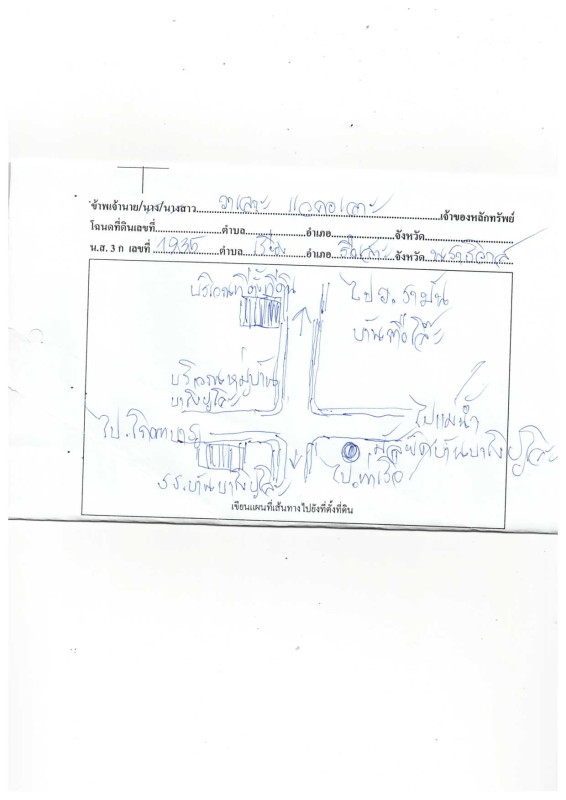 ข้าพเจ้านาย/นาง/นางสาว วาเลาะ แวดอเลาะ เจ้าของหลักทรัพย์
โฉนดที่ดินเลขที่ ตำบล อำเภอ จังหวัด
น.ส. 3 ก เลขที่ 1935 ตำบล เรียง อำเภอ รือเสาะ จังหวัด นราธิวาส
บริเวณที่ตั้งที่ดิน
ไป อ. รามัน
บ้านกือโต๊ะ
บริเวณหมู่บ้าน
ไปแม่น้ำ
ไป
มัสยิดบ้าน
ไปท่าเรือ
ร.ร. บ้าน
เขียนแผนที่เส้นทางไปยังที่ตั้งที่ดิน